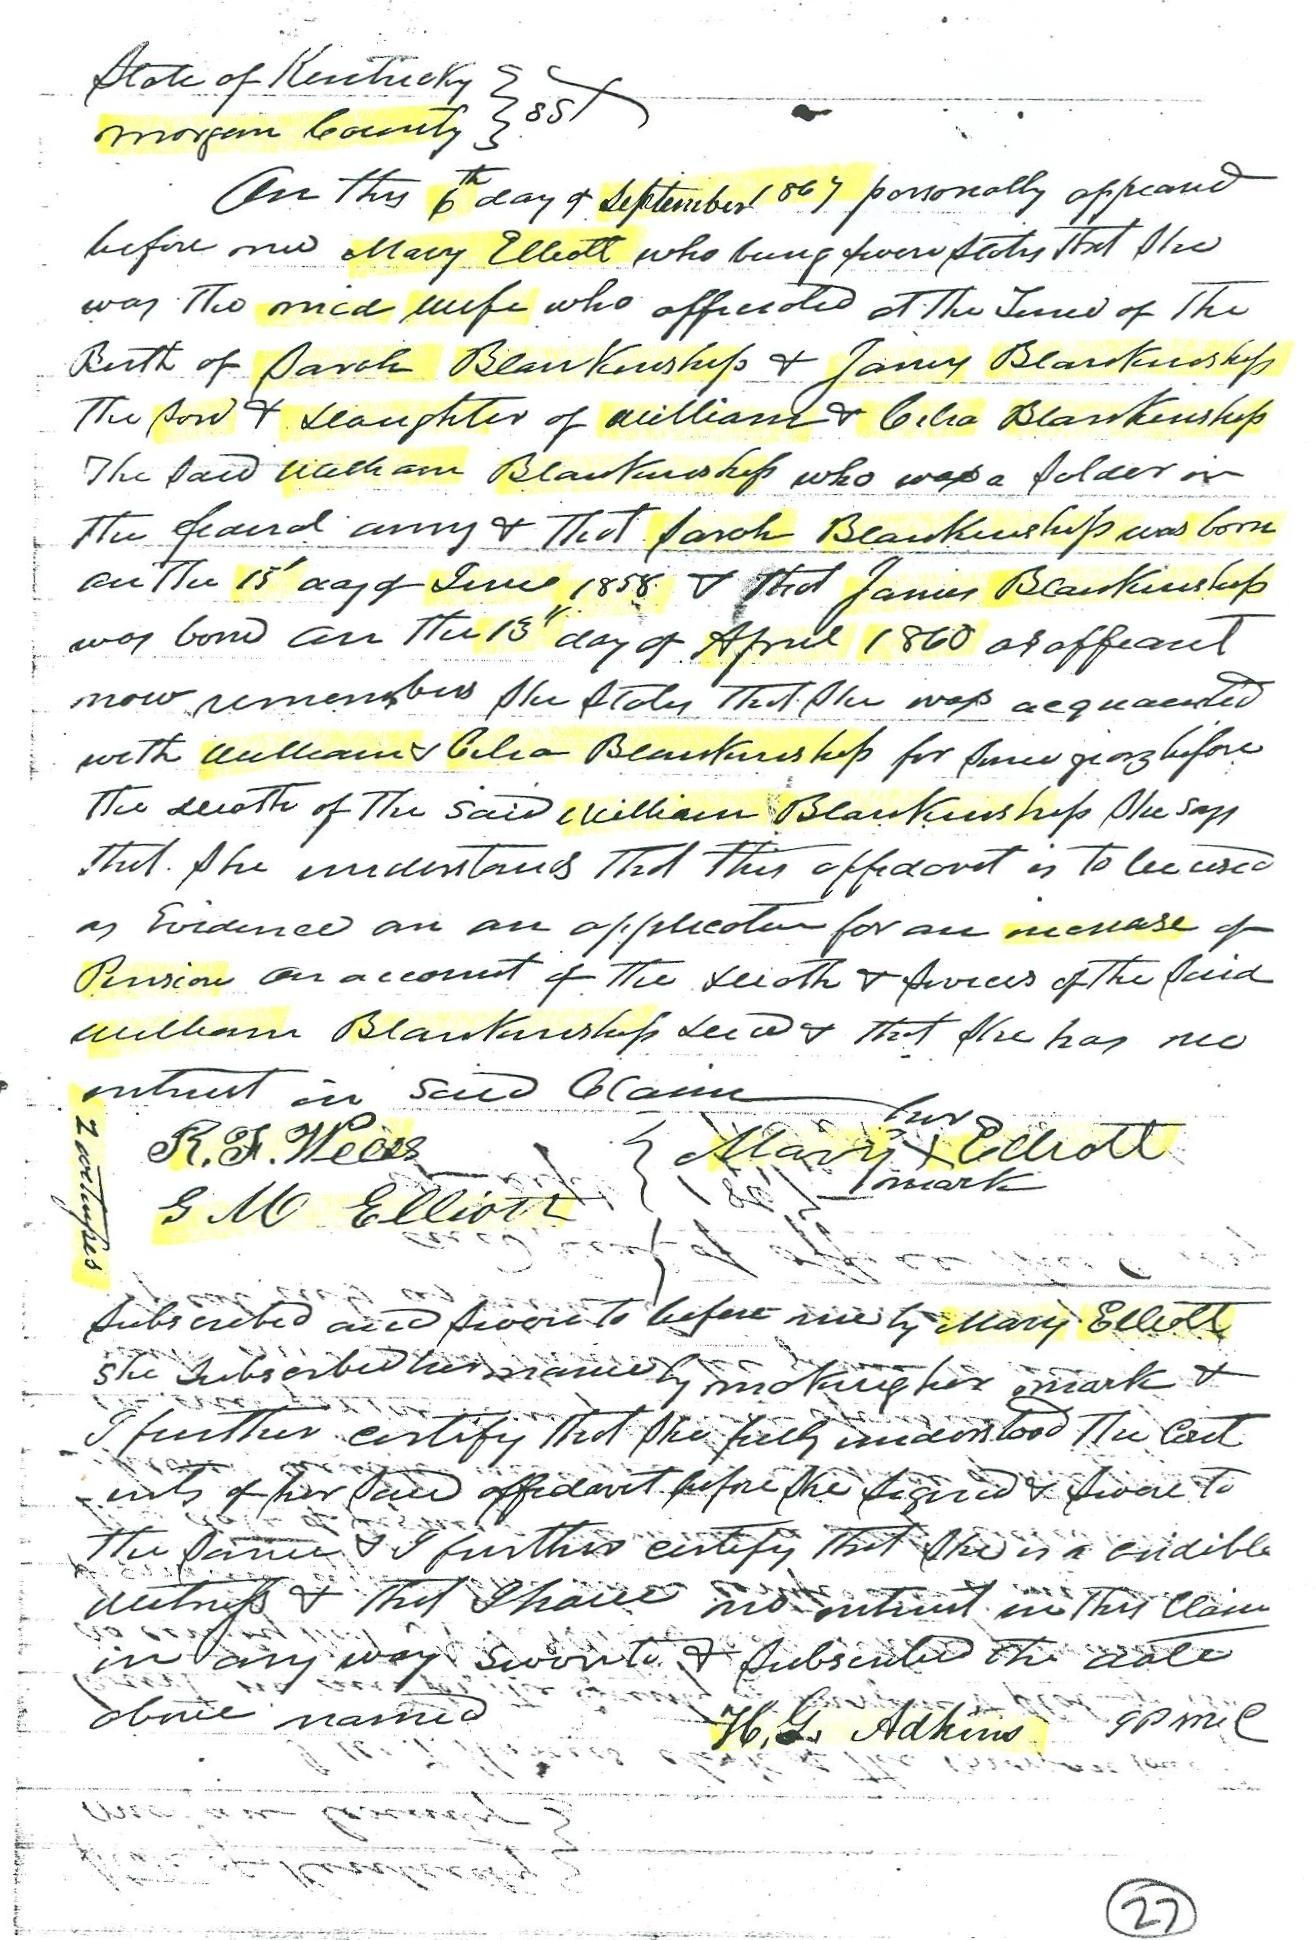 State of Kentucky
Morgan County } SS
On this 6th day of September 1867 personally appeared
before me Mary Elliott who being sworn States that She
was the mid wife who officiated at the Time of The
Birth of Sarah Blankenship & James Blankenship
The Son & Daughter of William & Celia Blankenship
The Said William Blankenship who was a Solder in
the federal army & that Sarah Blankenship was born
on the 15" day of June 1858 & that James Blankenship
was born on the 13" day of April 1860 as affeant
now remembers She States that She was acquainted
with William & Celia Blankenship for Some years before
the death of the said William Blankenship She says
that She understands that this affidavit is to be used
as Evidence on an application for an increase of
Pension on account of the death & Services of the Said
William Blankenship & that She has no
intrust in said Claim
her
R. F.
Mary X Elliott
mark
G M Elliott
2 witnesses
Subscribed and Swore to before me by Mary Elliott
She Subscribed her name by making her mark &
I further certify that She fully understood the Cont
ents of her Said affidavit before She Signed & Swore to
the Same & I further certify that She is a credible
witness & that I have no intrust in this Claim
in any way Sworn to & Subscribed the date
above named
H. G. Adkins JPMC
27